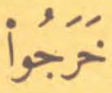 خَرَجُواْ